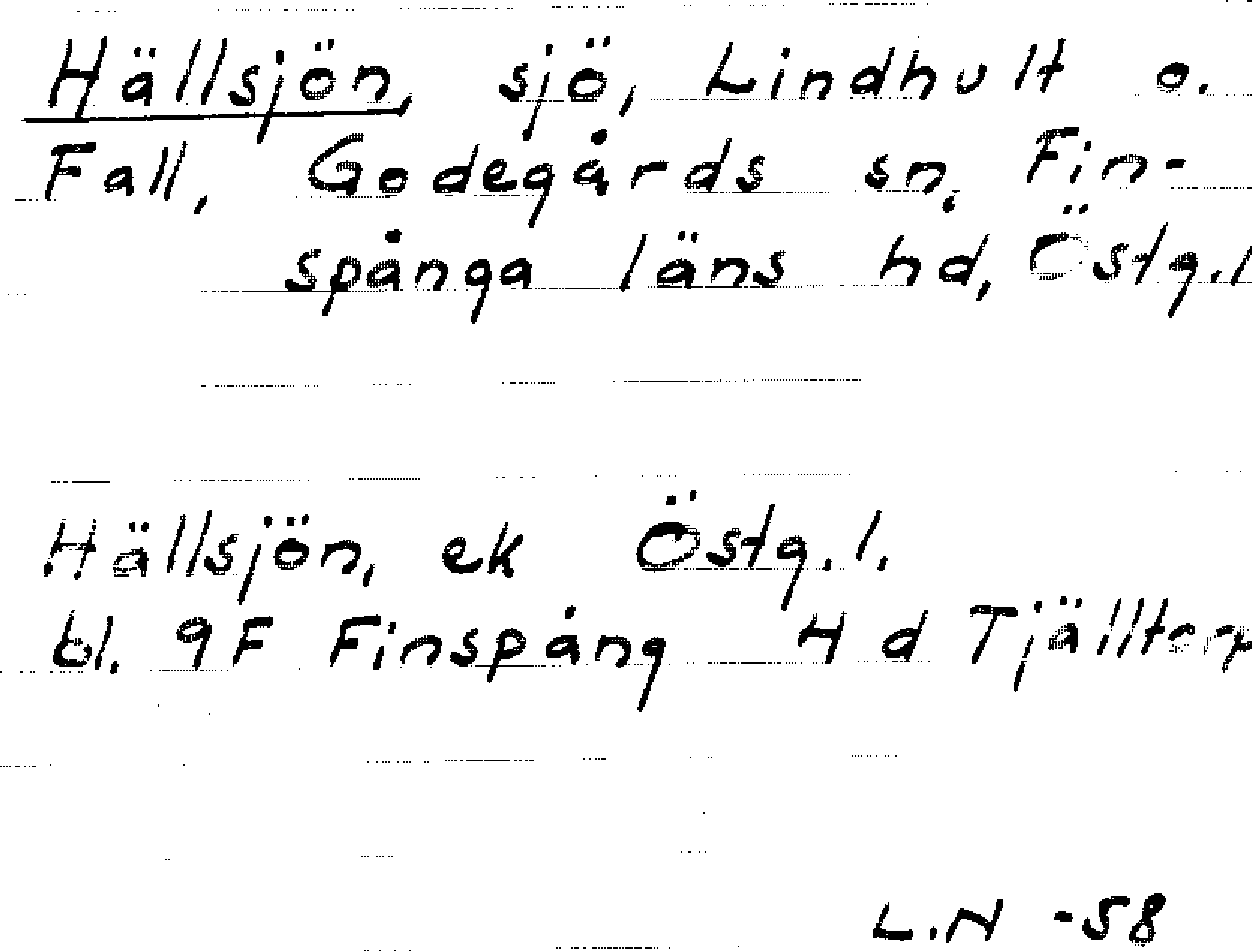 Hällsjön, sjö, Lindhult o.
Fall, Godegårds sn, Fin-
spånga läns hd, Östg.l
Hällsjön, ek Östg.l.
bl. 9F Finspång 4 d Tjälltorp
L.N -58